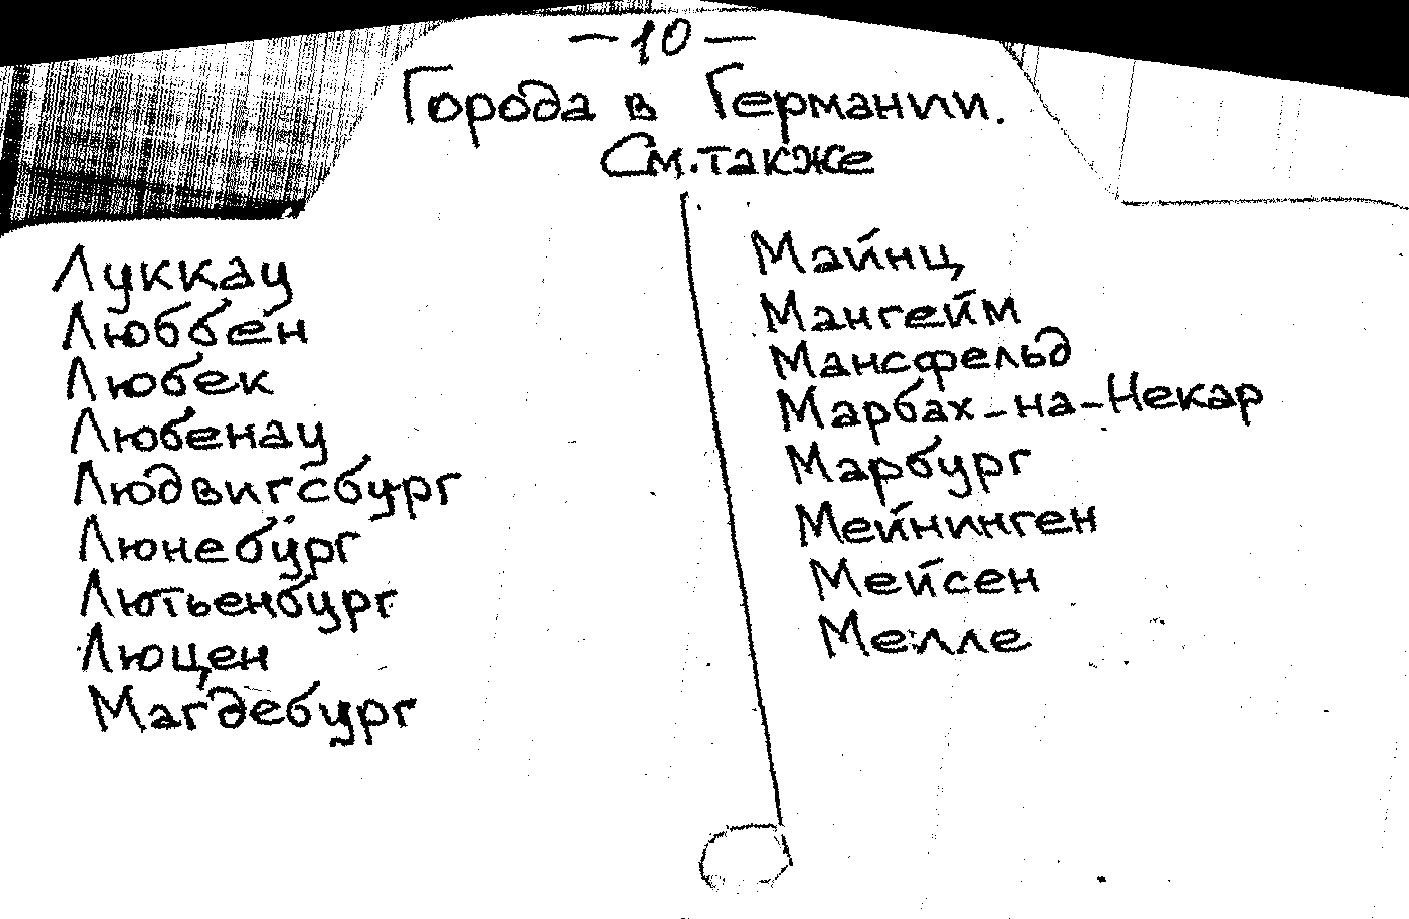 – 10 –
Города в Германии.
См. также
Луккау
Люббен
Любек
Любенау
Людвигсбург
Люнебург
Лютьенбург
Люцен
Магдебург
Майнц
Мангейм
Мансфельд
Марбах-на-Некар
Марбург
Мейнинген
Мейсен
Мелле